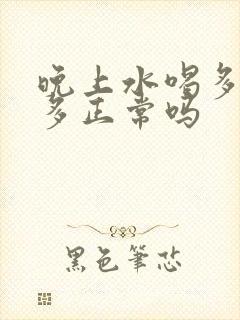 晚上水喝多
多正常吗
黑色笔芯